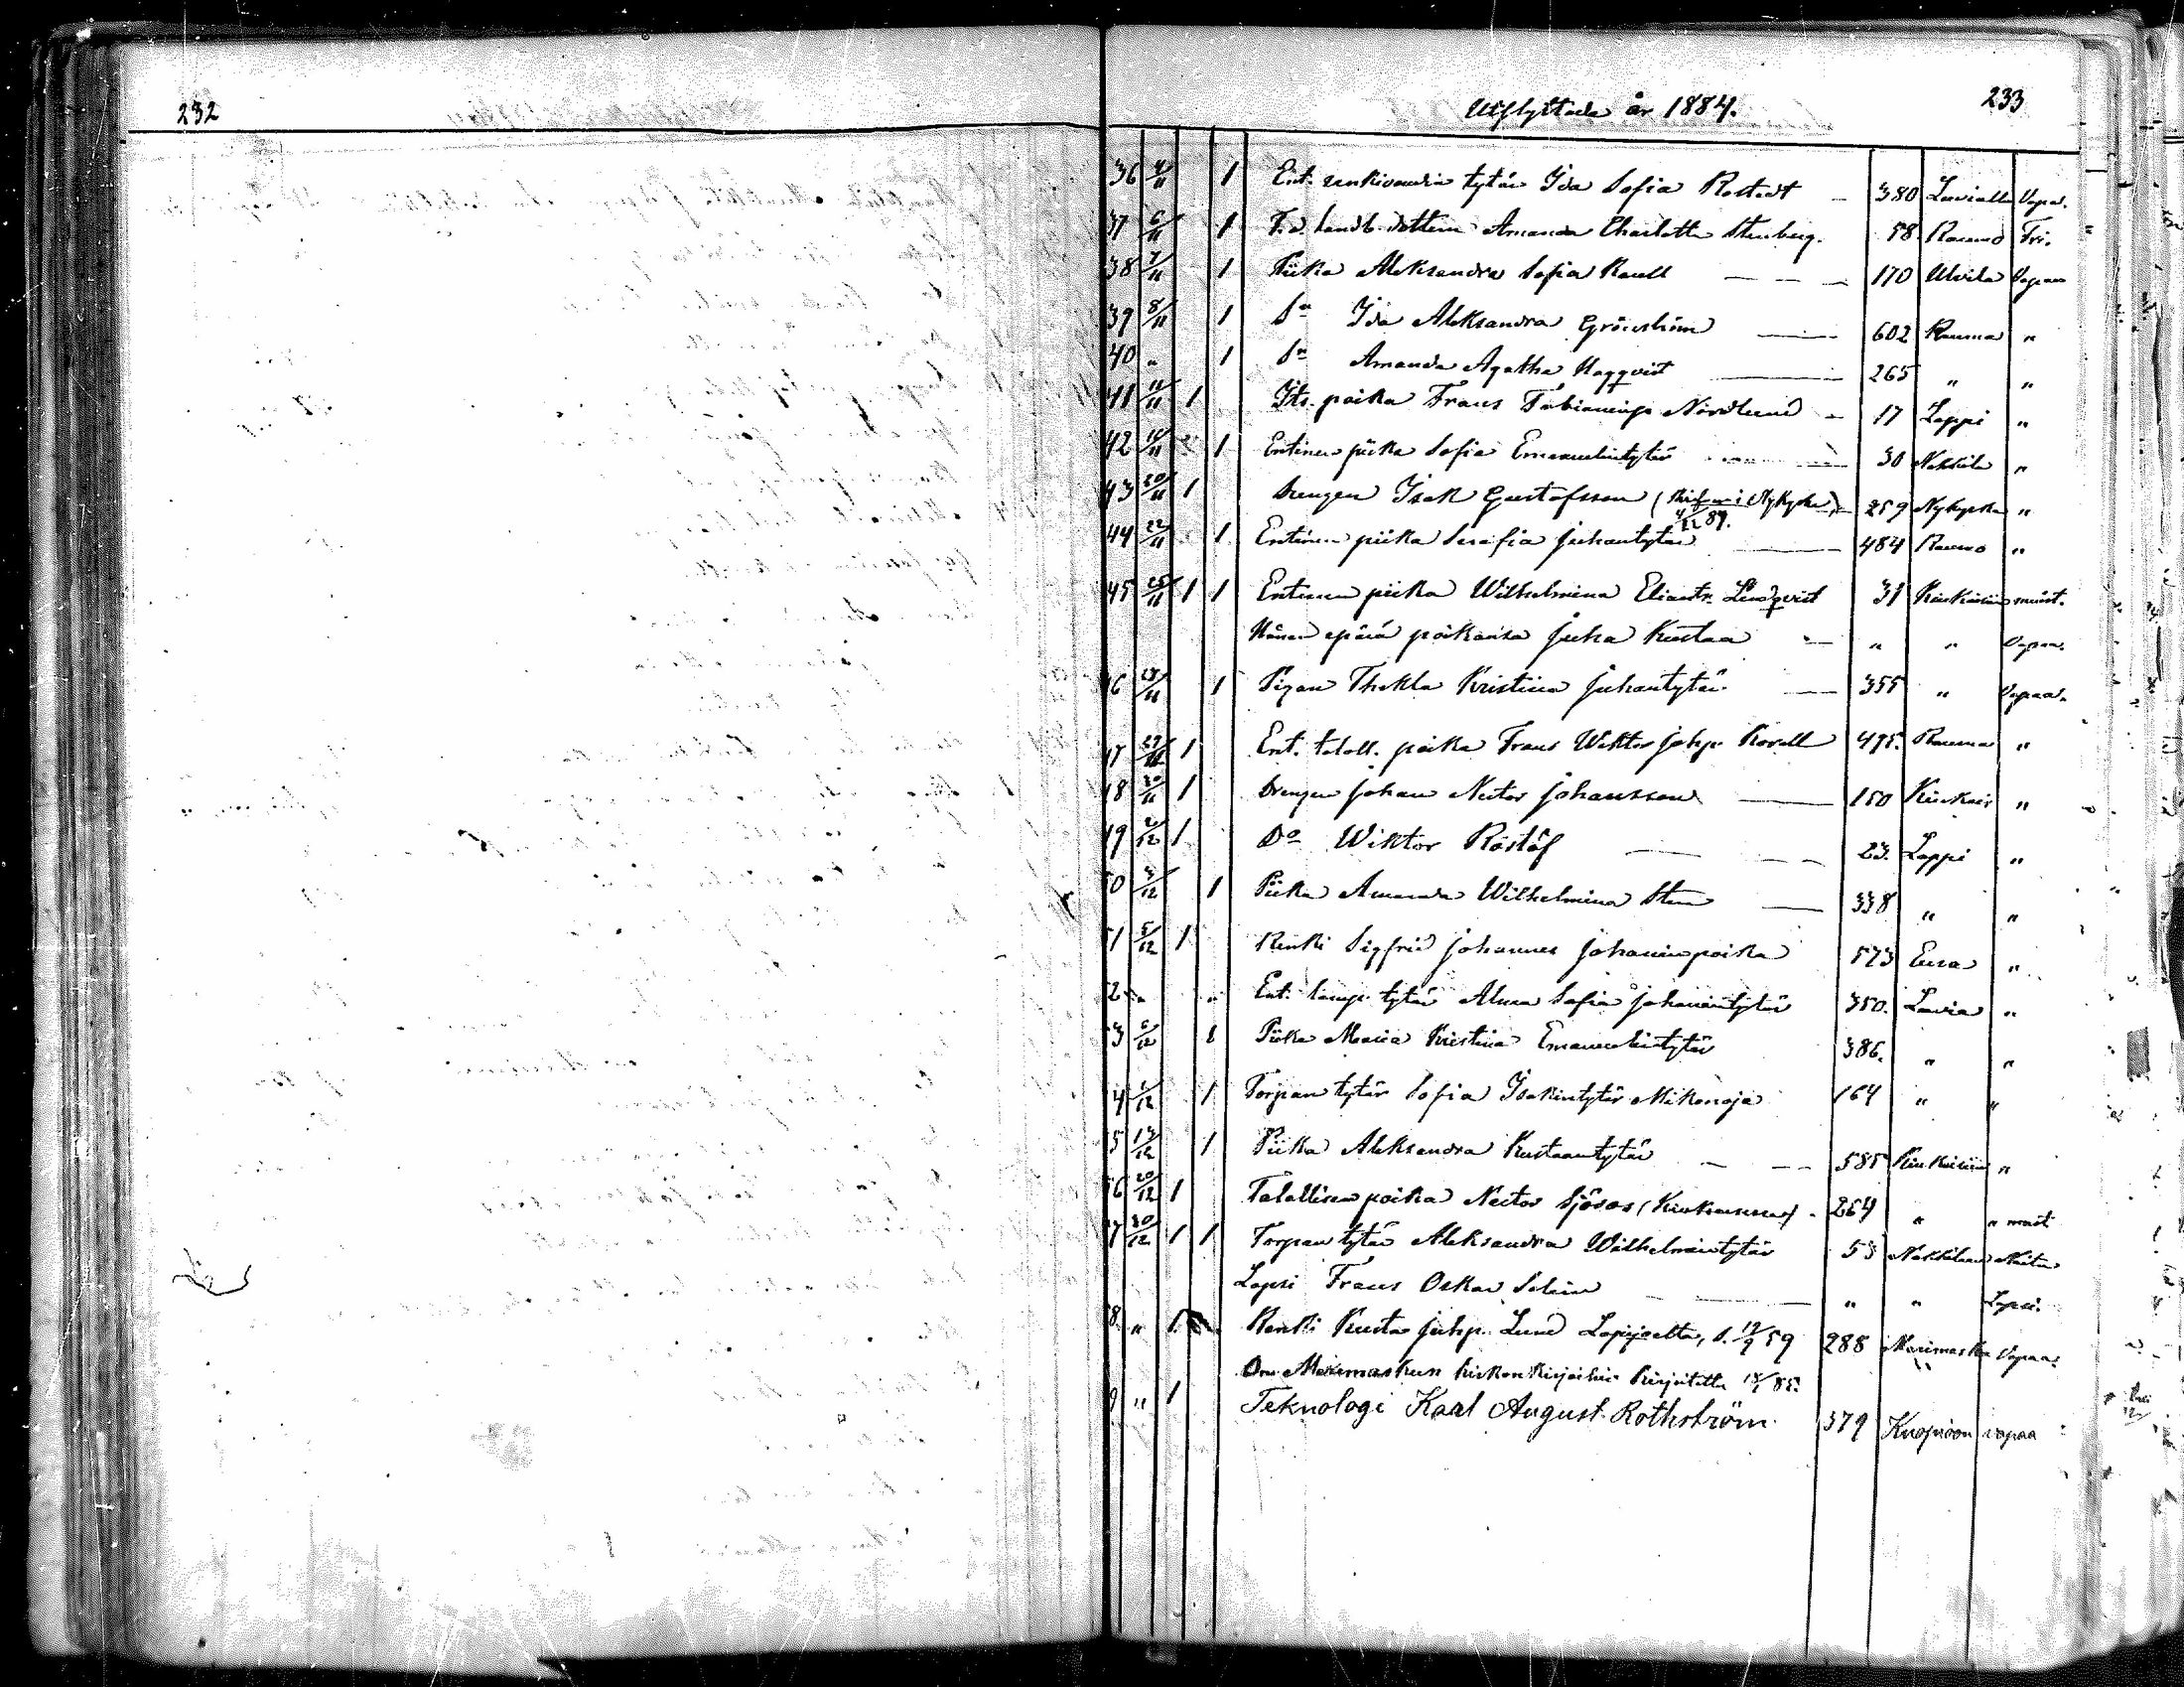 232
Utflyttade år 1884. 233
36 4/11 1 Ent. renkivoudin tytär Ida Sofia Rostedt 380 Lavialle Vapa.
37 6/11 1 F. d. landb. dottern Amanda Charlotta Stenberg. 58 Raumo Fri.
38 7/11 1 Piika Aleksandra Sofia Raull 170 Ulvila Vapaa
39 8/11 1 Do Ida Aleksandra Grönström 602 Rauma "
40 " 1 Do Amanda Agatha Haggvist 265 " "
41 11/11 1 Its. poika Frans Fabianinp. Nordlund 17 Lappi "
42 1 Entinen piika Sofia Emanuelintytär 30 Nakkila "
43 20/11 1 Drengen Isak Gustafsson ( Nykyrka) 259 Nykyrka "
44 22/11 1 Entinen piika Serafia Juhantytär 484 Raumo "
45 25/11 1 1 Entinen piika Wilhelmina Eliantr. Lindqvist 31 Kiukaisiin muist.
Hänen äpärä poikansa Juha Kustaa " " Vapaa.
6 28/11 1 Pigan Thekla Kristiina Juhantytär 355 " Vapaa.
17 29/11 1 Ent. taloll. poika Frans Wiktor Johp. Korell 495. Rauma "
18 30/11 1 Drengen Johan Nestor Johansson 150 Kiukais "
19 2/12 1 Do Wiktor Röstöf 23. Lappi "
50 3/12 1 Piika Amanda Wilhelmina Sten 338 " "
51 5/12 1 Renki Sigfrid Johannes Johaninpoika 573 Eura "
2 " " Ent. tytär Alma Sofia Johanintytär 350. Lavia "
3 6/12 1 Piika Maria Kristiina Emanuelintytär 386. " "
4 /12 1 Torpan tytär Sofia Isakintytär Mikonoja 164 " "
5 13/12 1 Piika Aleksandra Kustaantytär 585 Kiukaisiin "
56 20/12 1 Talollisen poika Nestor Sjöroos (Kiukaisissa) 264 " "
7 30/12 1 1 Torpan tytär Aleksandra Wilhelmintytär 53 Nakkilaan
Lapsi Frans Oskar Selim " " Lapsi.
8. " 1. Renki Kusta Juhp. Lund Lapijoelta, s. 12/9 59 288 Merimasku Vapaa.
On Merimaskun kirkonkirjoihin kirjoitettu 85.
9 " 1 Teknologi Kaal August Rothström 379 Kuopioon vapaa